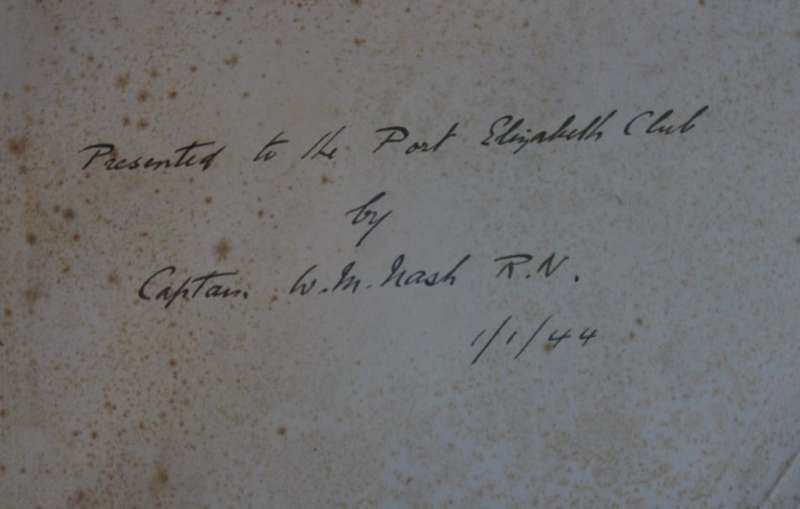 Presented to the Port Elizabeth Club
by
Captain W.M. Nash R.N.
1/1/44